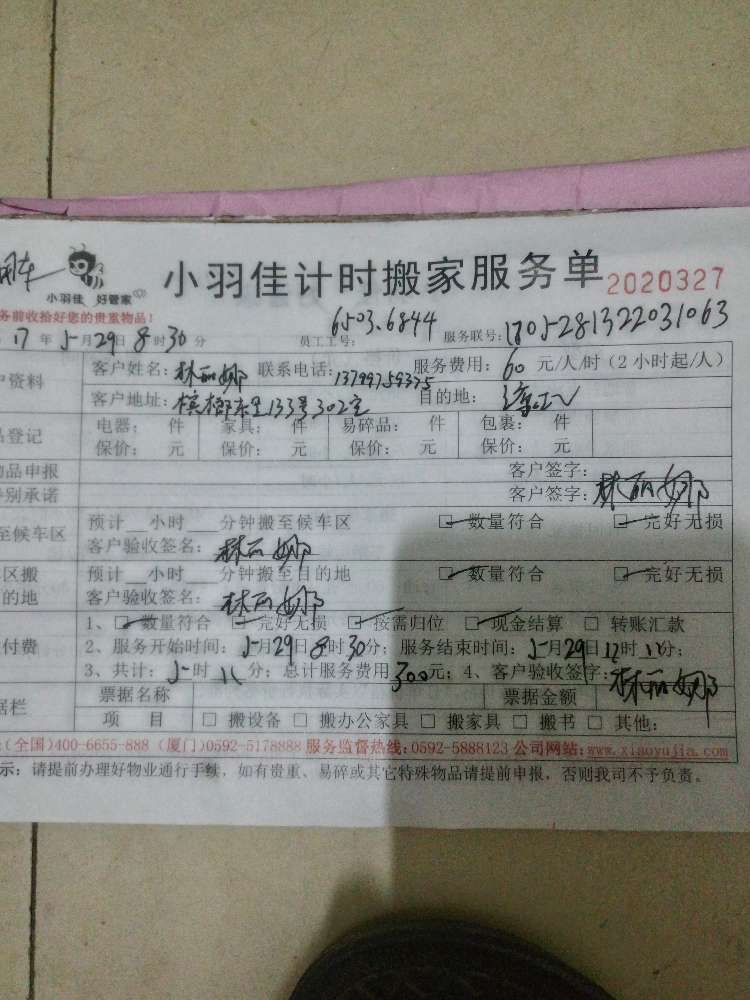 用车 小羽佳 好管家 小羽佳计时搬家服务单 2020327
务前收拾好您的贵重物品!
17年5月29日8时30分 员工工号: 6503.6844 服务联号:
户资料 客户姓名:林丽娜 联系电话:13799759375 服务费用:60元/人/时(2小时起/人)
客户地址:槟榔东里133号302室 目的地:
品登记 电器: 件 家具: 件 易碎品: 件 包裹: 件
保价: 元 保价: 元 保价: 元 保价: 元
物品申报 客户签字:
特别承诺 客户签字:林丽娜
至候车区 预计__小时___分钟搬至候车区 ☑数量符合 ☑完好无损
客户验收签名:林丽娜
区搬 预计__小时___分钟搬至目的地 ☑数量符合 ☑完好无损
的地 客户验收签名:林丽娜
1、☑数量符合 ☑完好无损 ☑按需归位 ☑现金结算 □转账汇款
付费 2、服务开始时间:5月29日8时30分;服务结束时间:5月29日12时11分;
3、共计:5时11分;总计服务费用300元;4、客户验收签字:林丽娜
据栏 票据名称 票据金额
项 目 □搬设备 □搬办公家具 □搬家具 □搬书 □其他:
:(全国)400-6655-888 (厦门)0592-5178888 服务监督热线:0592-5888123 公司网站:www.xiaoyujia.com
示:请提前办理好物业通行手续,如有贵重、易碎或其它特殊物品请提前申报,否则我司不予负责。